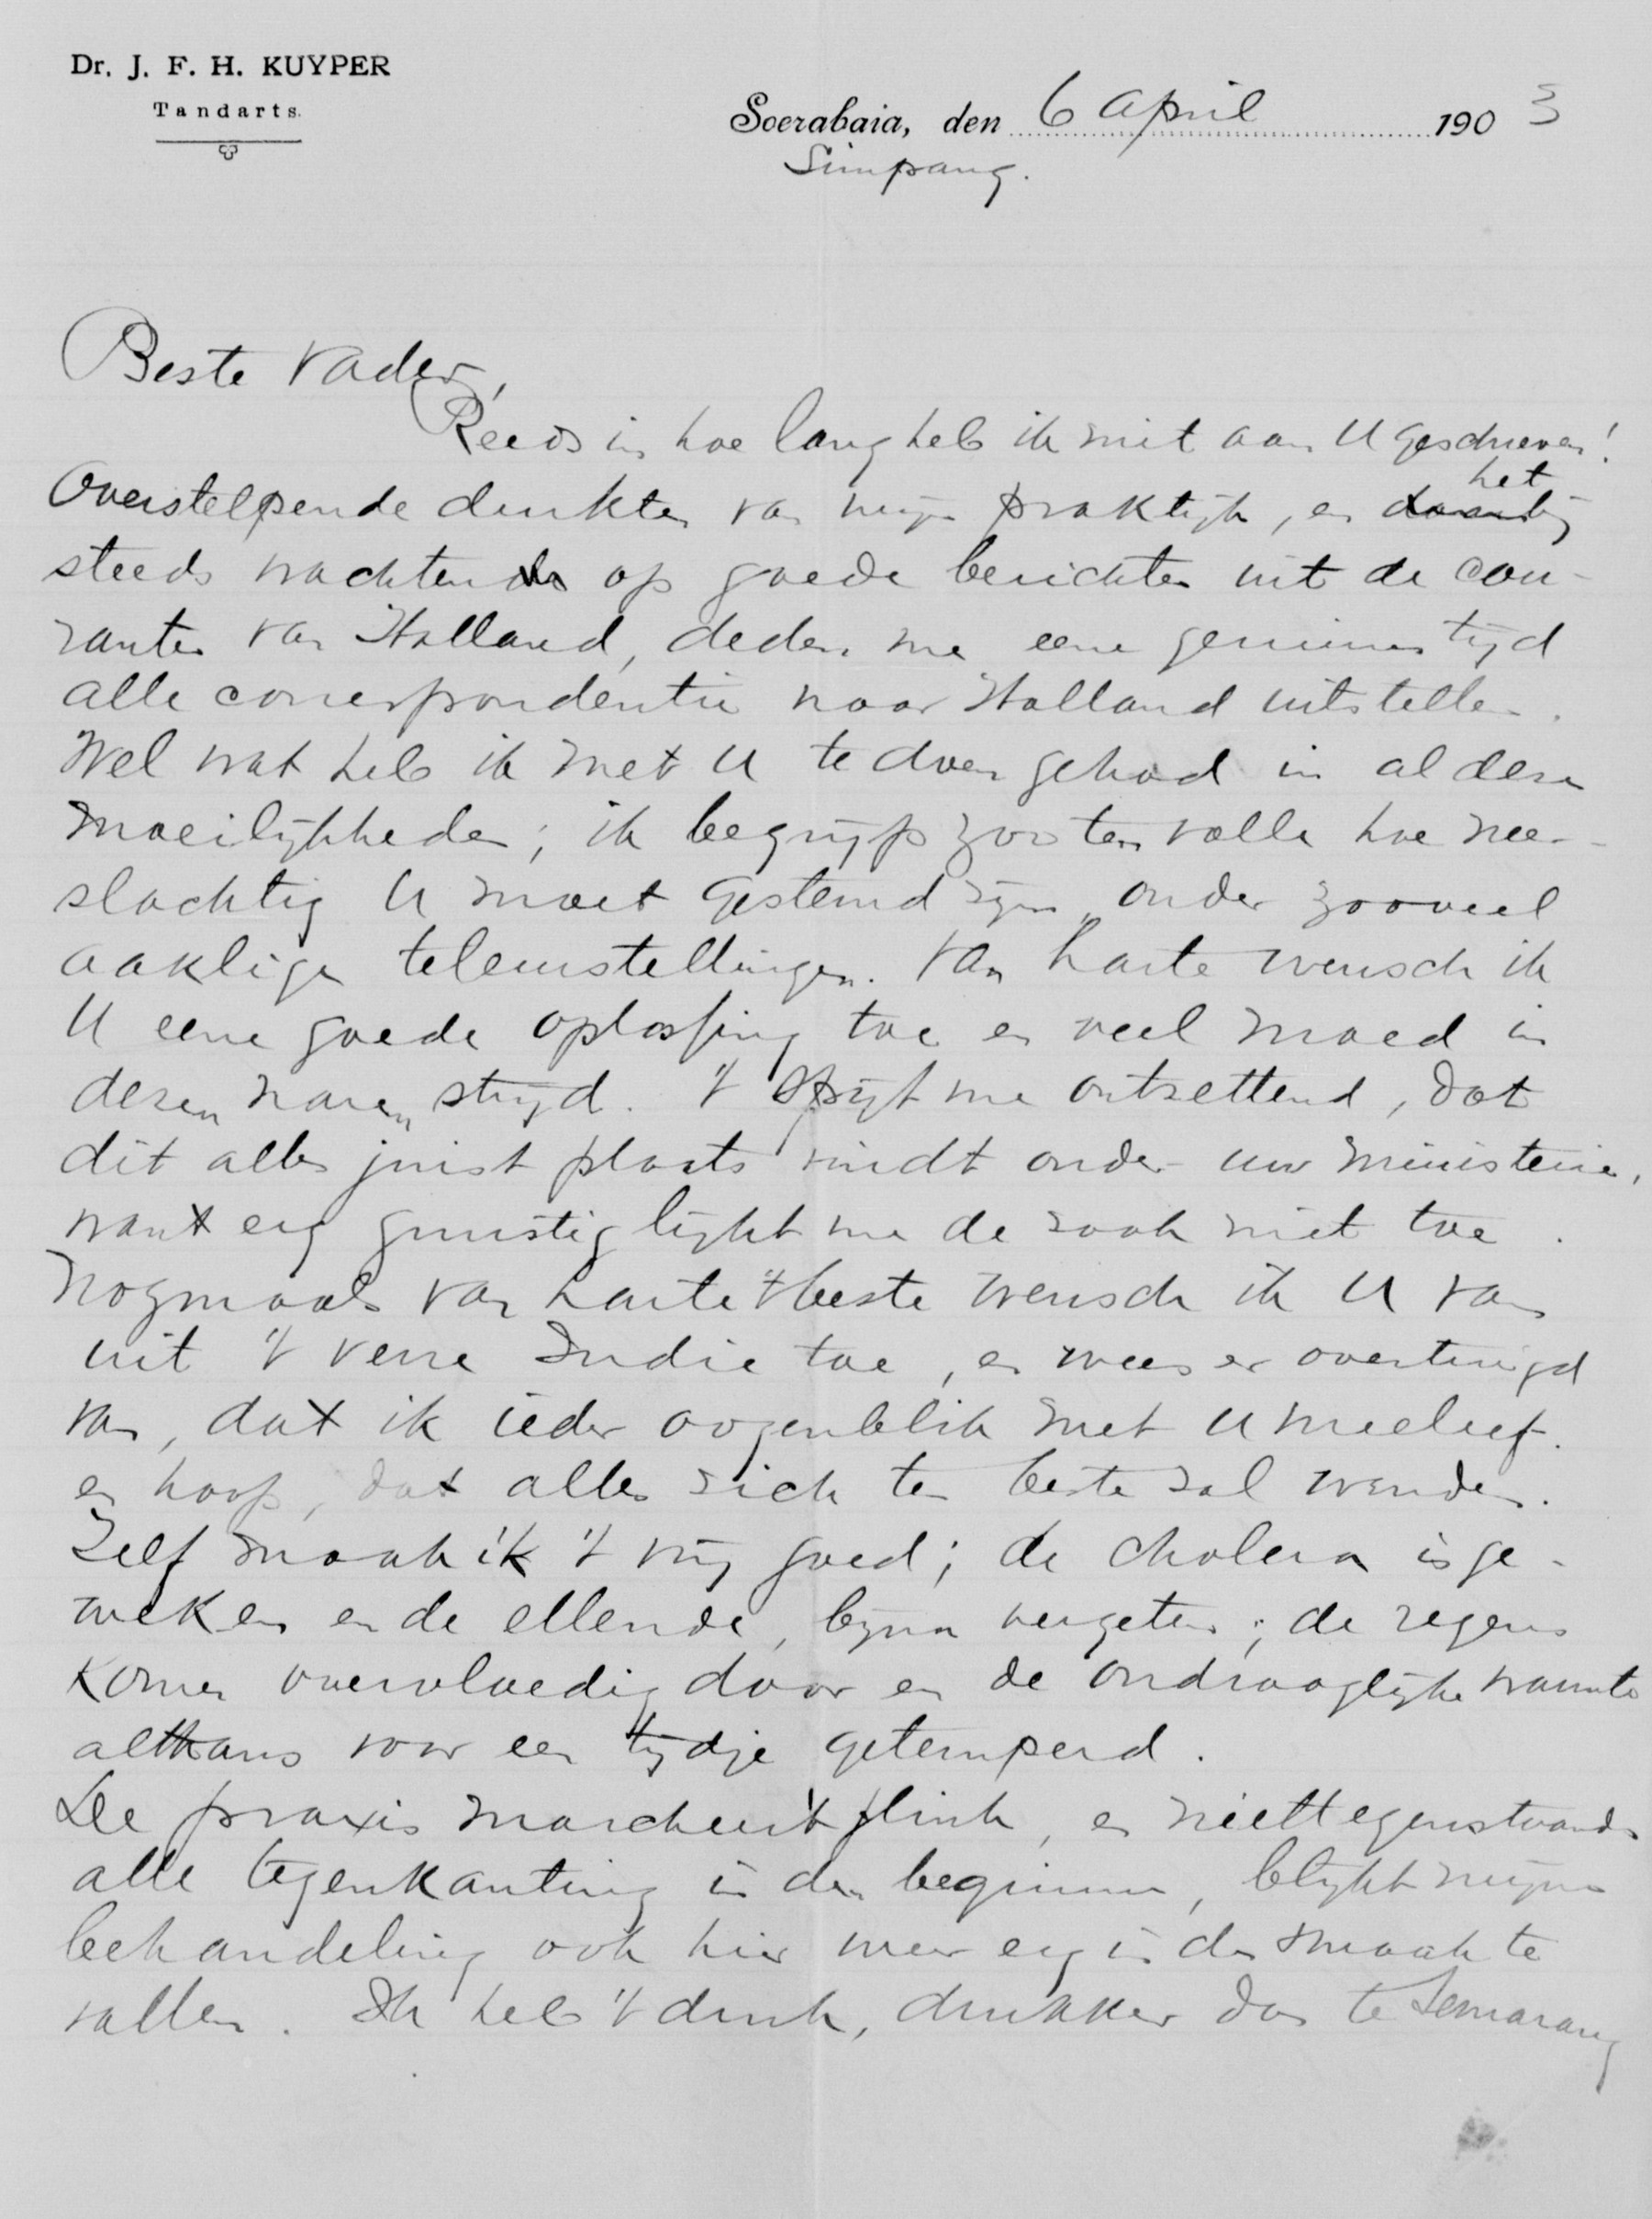 Dr. J. F. H. KUYPER
Tandarts.
Soerabaia, den 6 April 1903
Simpang.
Beste Vader,
Reeds in hoe lang heb ik niet aan U geschreven!
Overstelpende drukte van mijn praktijk, en het
steeds wachten op goede berichten uit de cou-
ranten van Holland, deden me eene geruimen tijd
alle correspondentie naar Holland uitstellen.
Wel wat heb ik met U te doen gehad in al deze
moeilijkheden; ik begrijp zoo ten volle hoe neer-
slachtig U moet gestemd zijn onder zooveel
aaklige teleurstellingen. Van harte wensch ik
U eene goede oplossing toe en veel moed in
dezen naren strijd. 't Spijt me ontzettend, dat
dit alles juist plaats vindt onder uw ministerie,
want erg gunstig lijkt me de zaak niet toe.
Nogmaals van harte 't beste wensch ik U van
uit 't verre Indie toe, en wees er overtuigd
van, dat ik ieder oogenblik met U meeleef.
en hoop, dat alles zich ten beste zal wenden.
Zelf maak ik 't vrij goed; de cholera is ge-
weken en de ellende, bijna vergeten; de regens
komen overvloedig door en de ondraaglijke warmte
althans voor een tijdje getemperd.
De praxis marcheert flink, en niettegenstaande
alle tegenkanting in den beginne, blijkt mijne
behandeling ook hier weer erg in de smaak te
vallen. Ik heb 't druk, drukker dan te Semarang